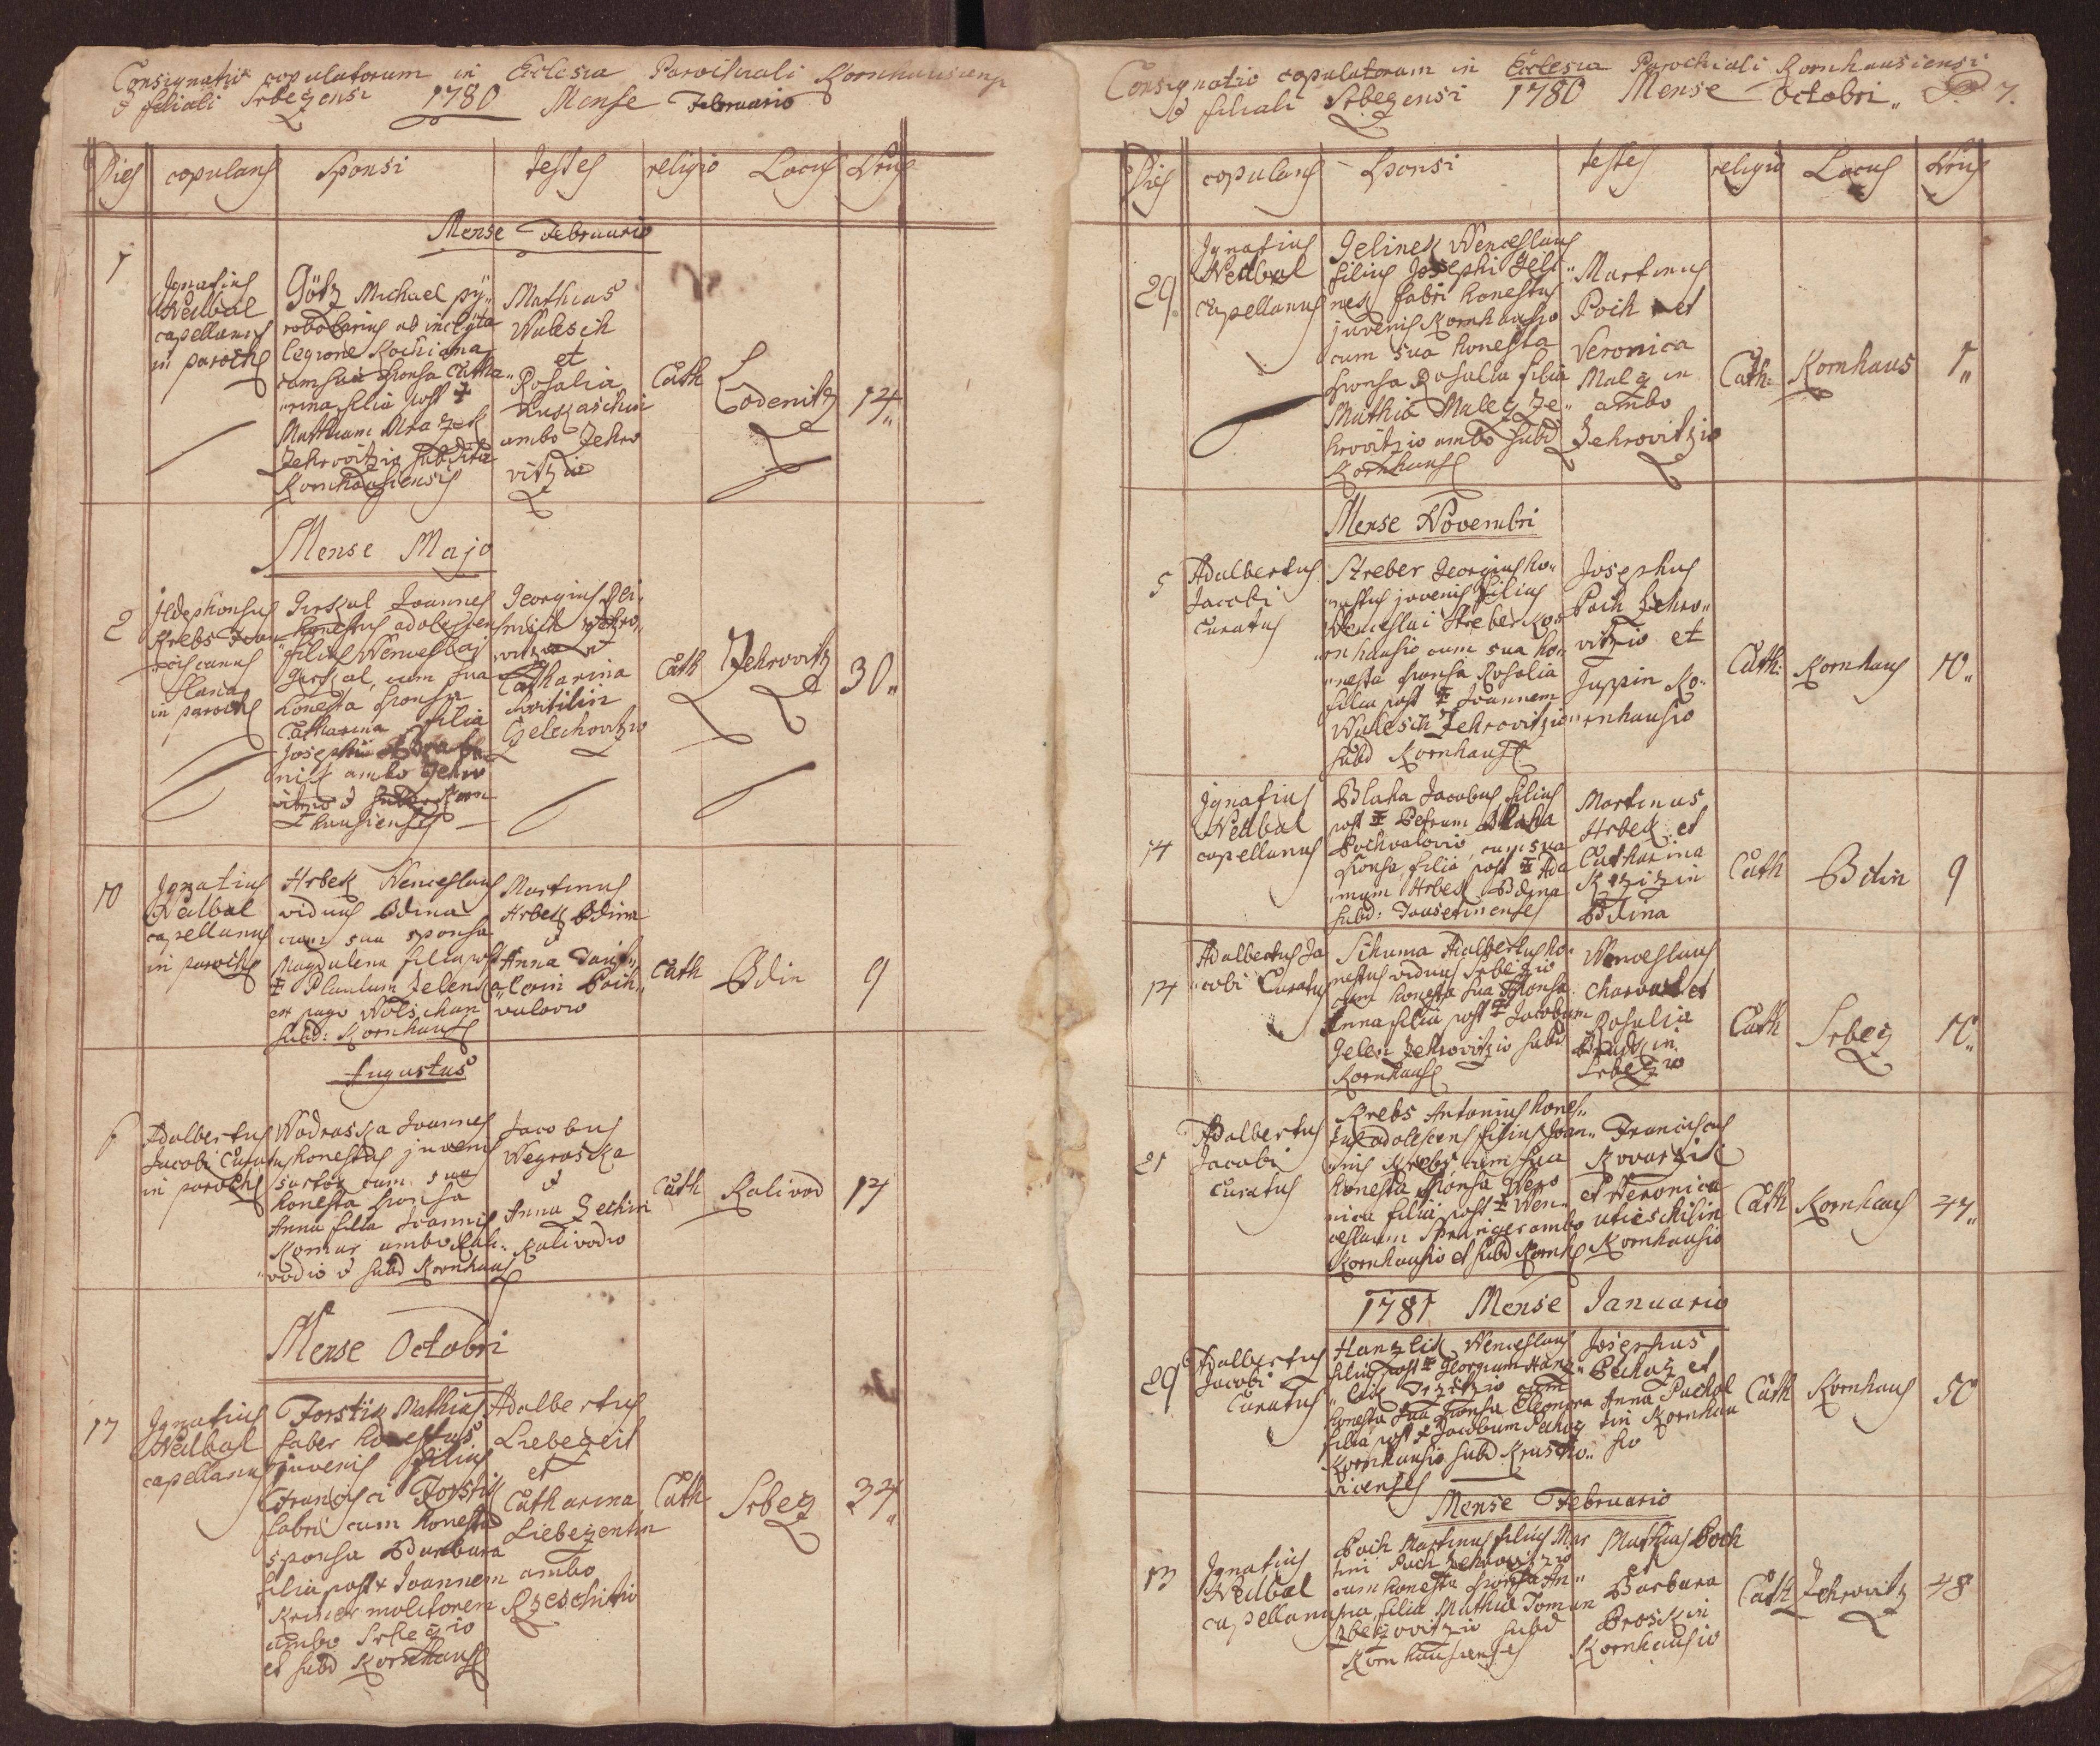 Consignatio copulatorum in Ecclesia Parochiali Kornhausiensi
& filiali Srbezensi 1780 Mense Februario
Dies copulans Sponsi Testes religio Locus Nrus
Mense Februario
1
Ignatius
Nedbal
capellanus
in paroch
Götz Michael py„
robolarius ab inclyta
legione Kochiana
cum sua sponsa Catha„
„rina filia post
Mathiam Mrazek
Zehrovitzio subdita
Kornhausiensis
Mathias
Walesch
et
Rosalia
ambo Zehro
vitzio
Cath
Lodenitz
14„
Mense Majo
2
Ildephonsus
Krebs
in paroch
Girskal Joannes
honestus adolescen
filius Wenceslai
Girskal, cum sua
honesta sponsa
Catharina filia
Josephi
ambo Zehro
vitzio & subd Korn
hausienses
Georgius
Zehro„
vitzio et
Catharina
Czelechovitzio
Cath
Zehrovitz
30„
10
Ignatius
Nedbal
capellanus
in paroch
Hrbek Wenceslaus
viduus Bdina
cum sua sponsa
Magdalena filia post
Paulum Zelenka
ex pago Wolschan
subd: Kornhaus
Martinus
Hrbek Bdina
&
Anna
Poch„
valovio
Cath
Bdin
9
Augustus
6
Adalbertus
Jacobi Curatus
in paroch
Wodraska Joannes
honestus juvenis
sartor cum sua
honesta sponsa
Anna filia Joannis
Komar ambo Kali:
„vodio & subd Kornhaus
Jacobus
Wegraska
&
Anna Zechin
Kalivodio
Cath
Kalivod
14
Mense Octobri
17
Ignatius
Nedbal
capellanus
Forstik Mathias
faber honestus
juvenis filius
Francisci Forstik
fabri cum honesta
sponsa Barbara
filia post Joannem
molitorem
ambo Srbezio
et subd Kornhaus
Adalbertus
Liebezeit
et
Catharina
Liebezentin
ambo
Rzeschitio
Cath
Srbez
34„
Consignatio copulatorum in Ecclesia Parochiali Kornhausiensi
& filiali Srbezensi 1780 Mense Octobri„ P. 7.
Dies copulans Sponsi testes religio Locus Nrus
29
Ignatius
Nedbal
capellanus
Jelinek Wenceslaus
filius Josephi Jeli„
nek fabri honestus
juvenis Kornhausio
cum sua honesta
sponsa Rosalia filia
Mathia Malez Ze„
hrovitzio ambo subd
Kornhaus
Martinus
Poch et
Veronica
Malz in
ambo
Zehrovitzio
Cath:
Kornhaus
1„
Mense Novembri
5
Adalbertus
Jacobi
Curatus
Streber Georgius ho„
„nestus juvenis filius
Wenceslai Streber Ko„
„rnhausio cum sua ho„
„nesta sponsa Rosalia
filia post Joannem
Walesch Zehrovitzio
subd Kornhaus
Josephus
Poch Zehro„
vitzio et
Juppin Ko„
„rnhausio
Cath:
Kornhaus
10„
14
Ignatius
Nedbal
capellanus
Blaha Jacobus filius
post Petrum Blaha
Pochvalovio, cum sua
sponsa filia post Ada
„mum Hrbek Bdina
subd:
Martinus
Hrbek et
Catharina
Bdina
Cath
Bdin
9
14
Adalbertus Ja
„cobi Curatus
Schuma Adalbertus ho„
nestus viduus Srbezio
cum honesta sua sponsa
Anna filia post Jacobum
Gelen Zehrovitzio subd
Kornhaus
Wenceslaus
Charvat et
Rosalia
Srbezio
Cath
Srbez
10„
21
Adalbertus
Jacobi
Curatus
Krebs Antonius hones„
tus adolescens filius Joan„
„nis Krebs, cum sua
honesta sponsa Vero
nica filia post Wen„
ceslaum Sprariger ambo
Kornhausio et subd Kornh
Franciscus
Kovarzik
et Veronica
Kornhausio
Cath
Kornhaus
47„
1781 Mense Januario
29
Adalbertus
Jacobi
Curatus
Hanzlik Wenceslaus
filius post Georgium Hanz„
„lik cum
honesta sua sponsa Eleonora
filia post Jacobum Pechaz
Kornhausio subd Krusko„
vicenses
Josephus
Pechaz et
Anna Puchol
tin Kornhau
sio
Cath
Kornhaus
50
Mense Februario
13
Ignatius
Nedbal
capellanus
Poch Martinus filius Mar
tini Poch Zehrovitzio
cum honesta sponsa An„
na, filia Mathia Toman
subd
Kornhausienses
Mathias Poch
et
Barbara
Proskin
Kornhausio
Cath
Zehrovitz
48